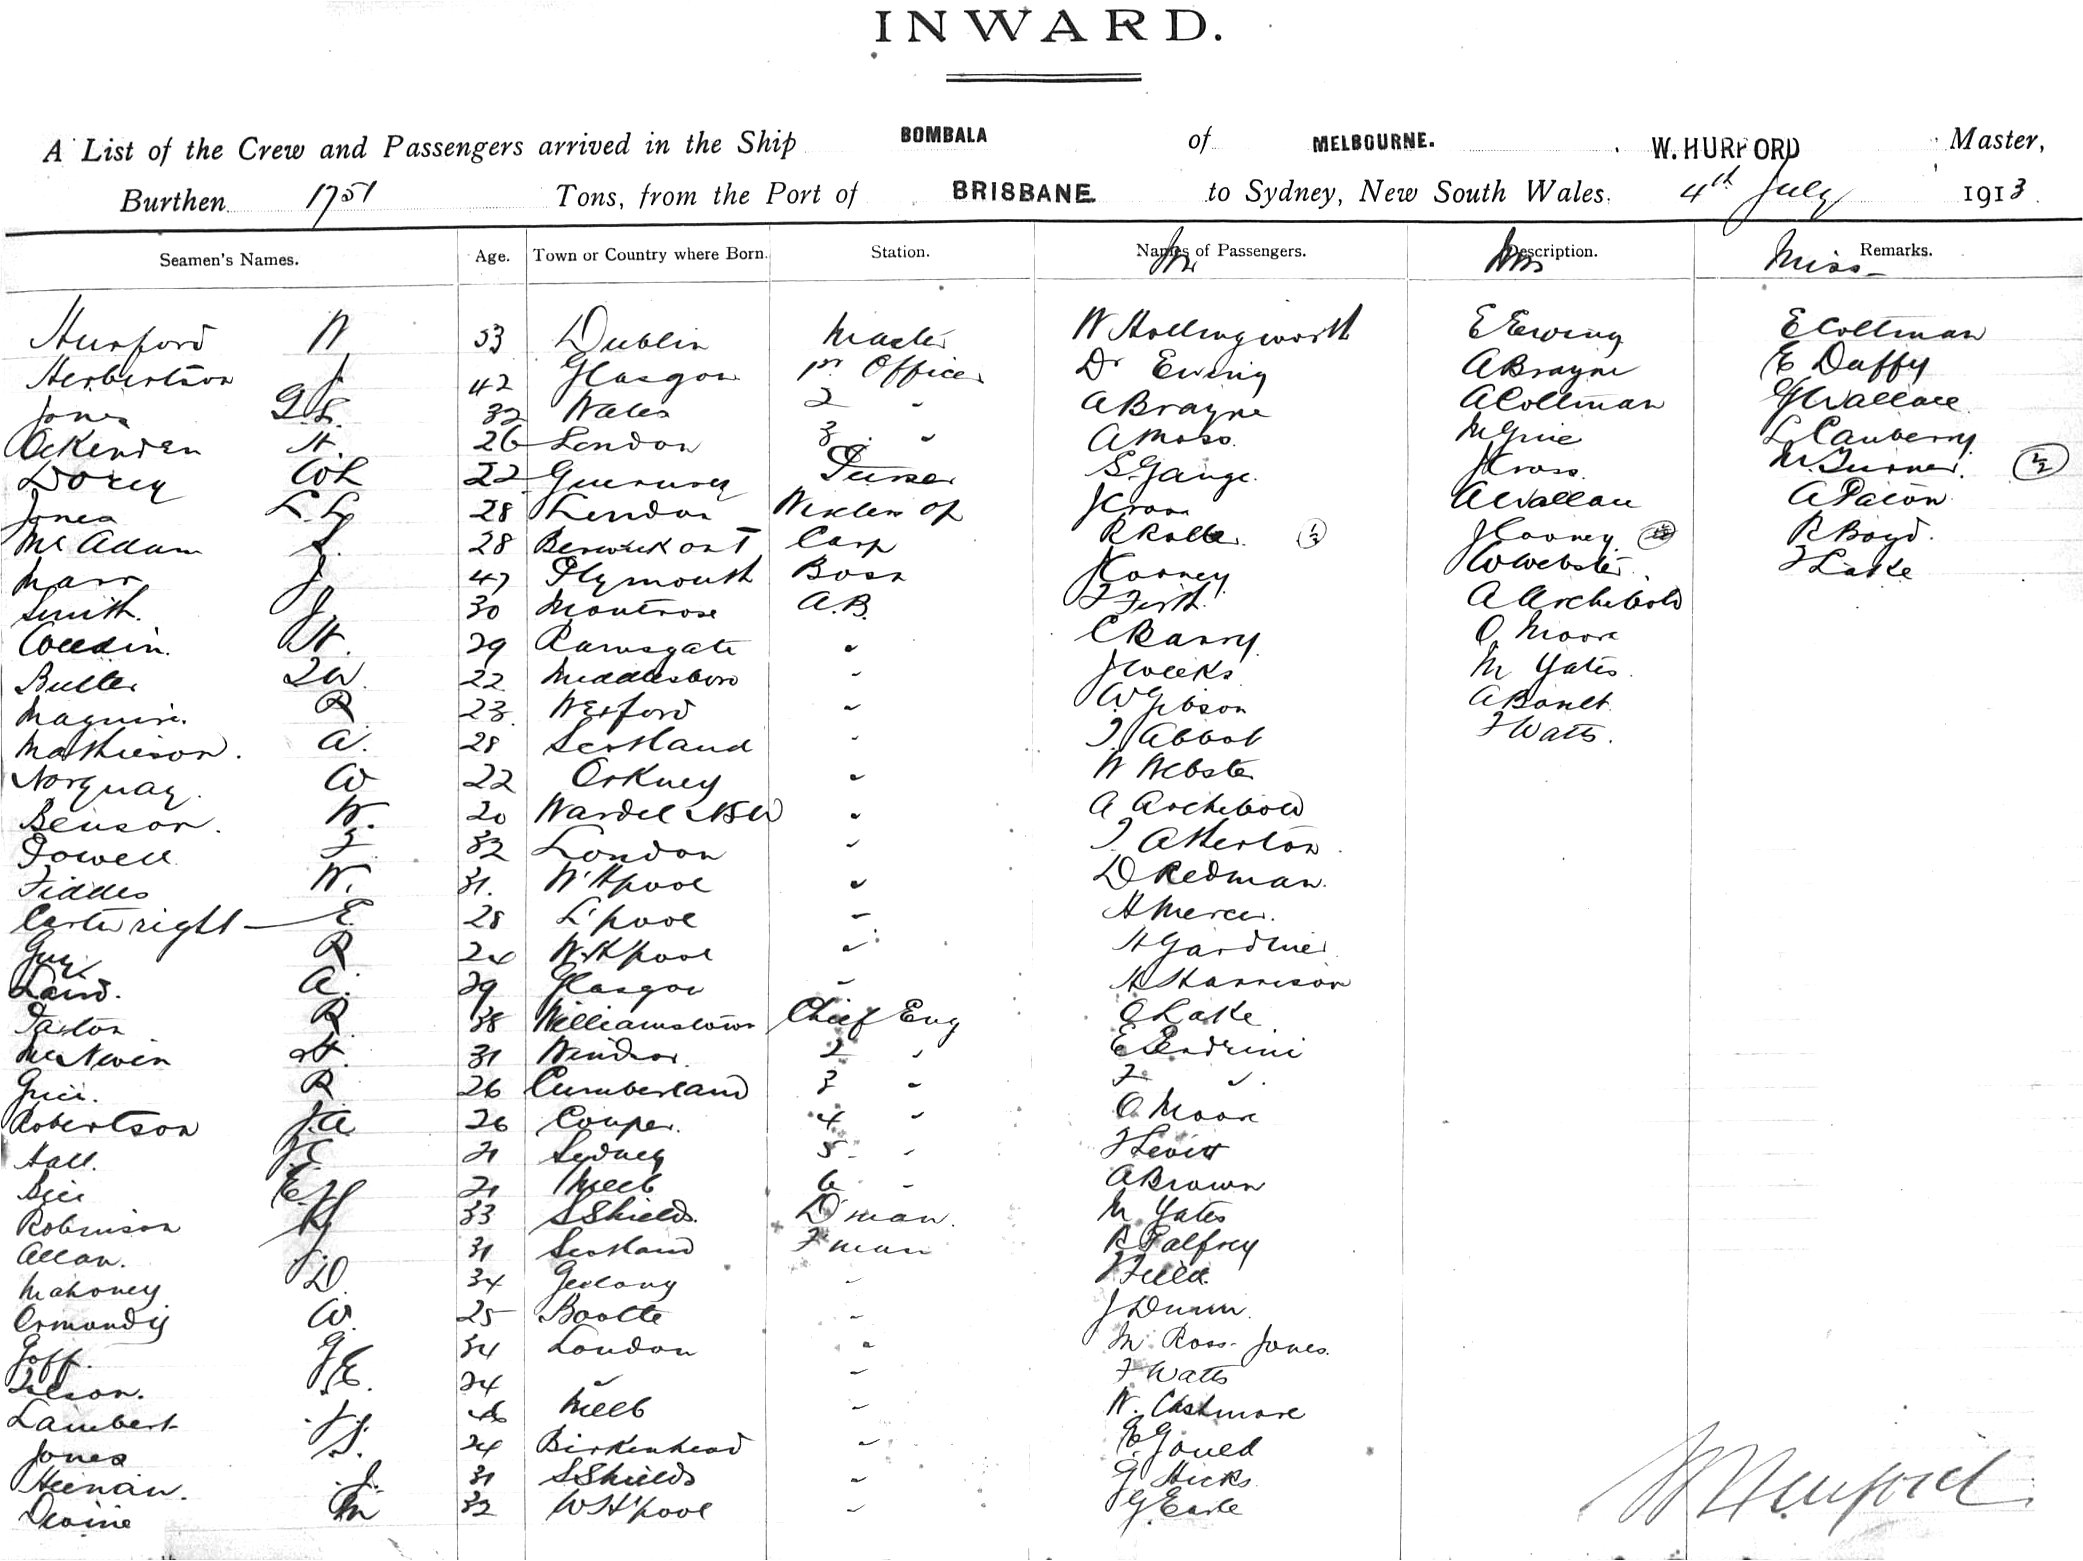 INWARD.
A List of the Crew and Passengers arrived in the Ship BOMBALA of MELBOURNE. W. HURFORD Master,
Burthen 1751 Tons, from the Port of BRISBANE to Sydney, New South Wales. 4th July 1913
Seamen's Names. Age. Town or Country where Born. Station. Names of Passengers. Mr Description. Mrs Remarks. Miss
Hurford W 53 Dublin Master W Hollingworth E Ewing E Coltman
Herbertson J 42 Glasgow 1st Officer Dr Ewing A Brayne E Duffy
Jones 32 Wales 2 " A Brayne A Coltman G Wallace
Ockenden H. 26 London 3 " A Moss M Grie L Canberry
Dorey WL 22 Guernsey Purser S. Gange J Cross M. Turner. 1/2
Jones L.L. 28 London Wireless op J Cross A Wallace A Paton
McAdam S. 28 Berwick on T Carp R Rolle. 1/2 J Cooney R Boyd.
Marr J 47 Plymouth Bosn J Cooney W Webster. F Lake
Smith. J 30 Montrose A.B. F Firth. A Archibold
H. 29 Ramsgate " C Barry O. Moore
Butler 22 Middlesboro " J Weeks M Yates.
Maguire. R 23 Wexford " W Gibson A
Mathieson. A. 28 Scotland " J. Abbot F Watts.
Norquay. W 22 Orkney " W Webster
Benson. W. 20 Wardel NSW " A Archibold
Powell F 32 London " J. Atherton
Fiddes W. 31. W'Hpool " D Redman.
Cartwright E. 28 L'pool " H Mercer.
Guy R 24 W.Hpool " H Gardner
Laird. A. 29 Glasgow " H Harrison
Paxton R 38 Williamstown Chief Eng O Lake
McNiven H. 31 Windsor 2 " E
R 26 Cumberland 3 " F "
Robertson J.A. 26 Couper. 4 " O. Moore
Hall. 21 Sydney 5 " F Levitt
21 Melb 6 " A Brown
Robinson H 33 S Shields. D man. M Yates
Allan. J. 31 Scotland F man R Palfrey
Mahoney D. 34 Geelong "
Ormondy W. 25 Bootle " J Dunn.
Goff. G 34 London " M Ross-Jones.
J.E. 24 " " F Watts
Lambert J. Melb " W. Cashmore
Jones S. 24 Birkenhead " E. Gould
Heenan. J. 31 S Shields " G Hicks
Devine M 32 WH'pool " G. Earle
W Hurford